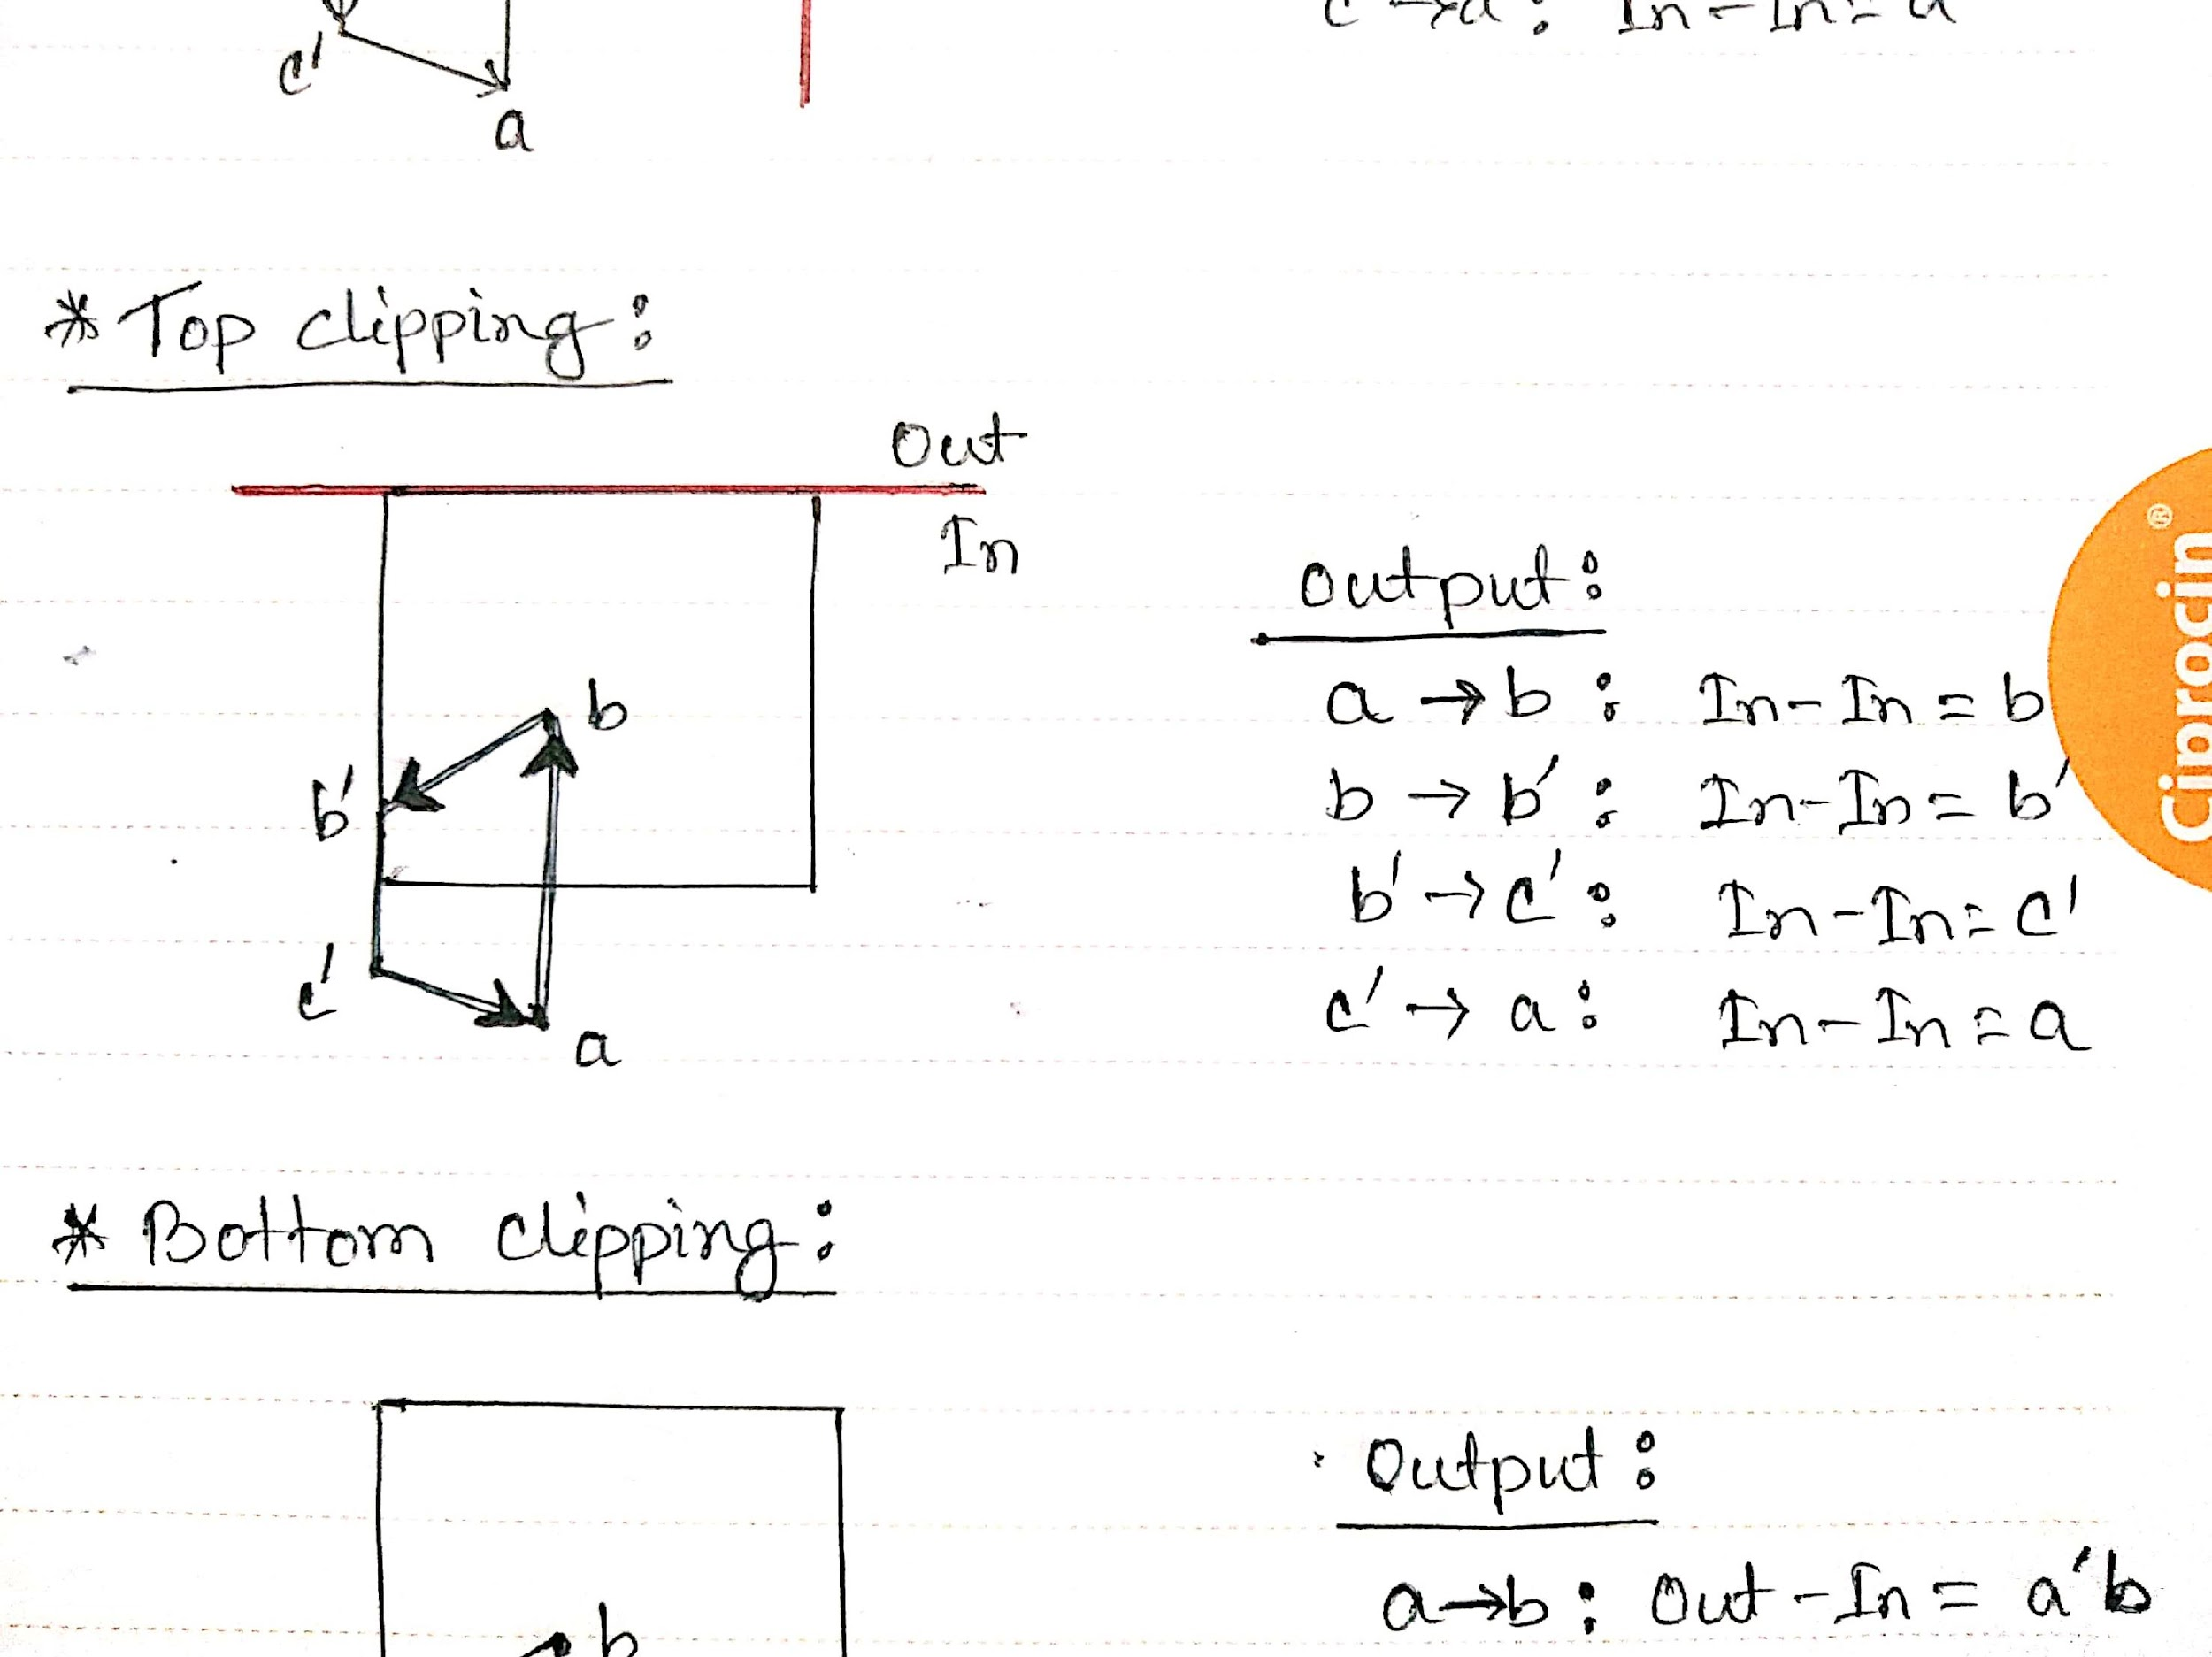 c'
a
* Top clipping:
Out
In
b
b'
c'
a
output:
a → b : In - In = b
b → b' : In - In = b'
b' → c' : In - In = c'
c' → a : In - In = a
Ciprocin®
* Bottom clipping:
b
Output:
a → b : Out - In = a'b